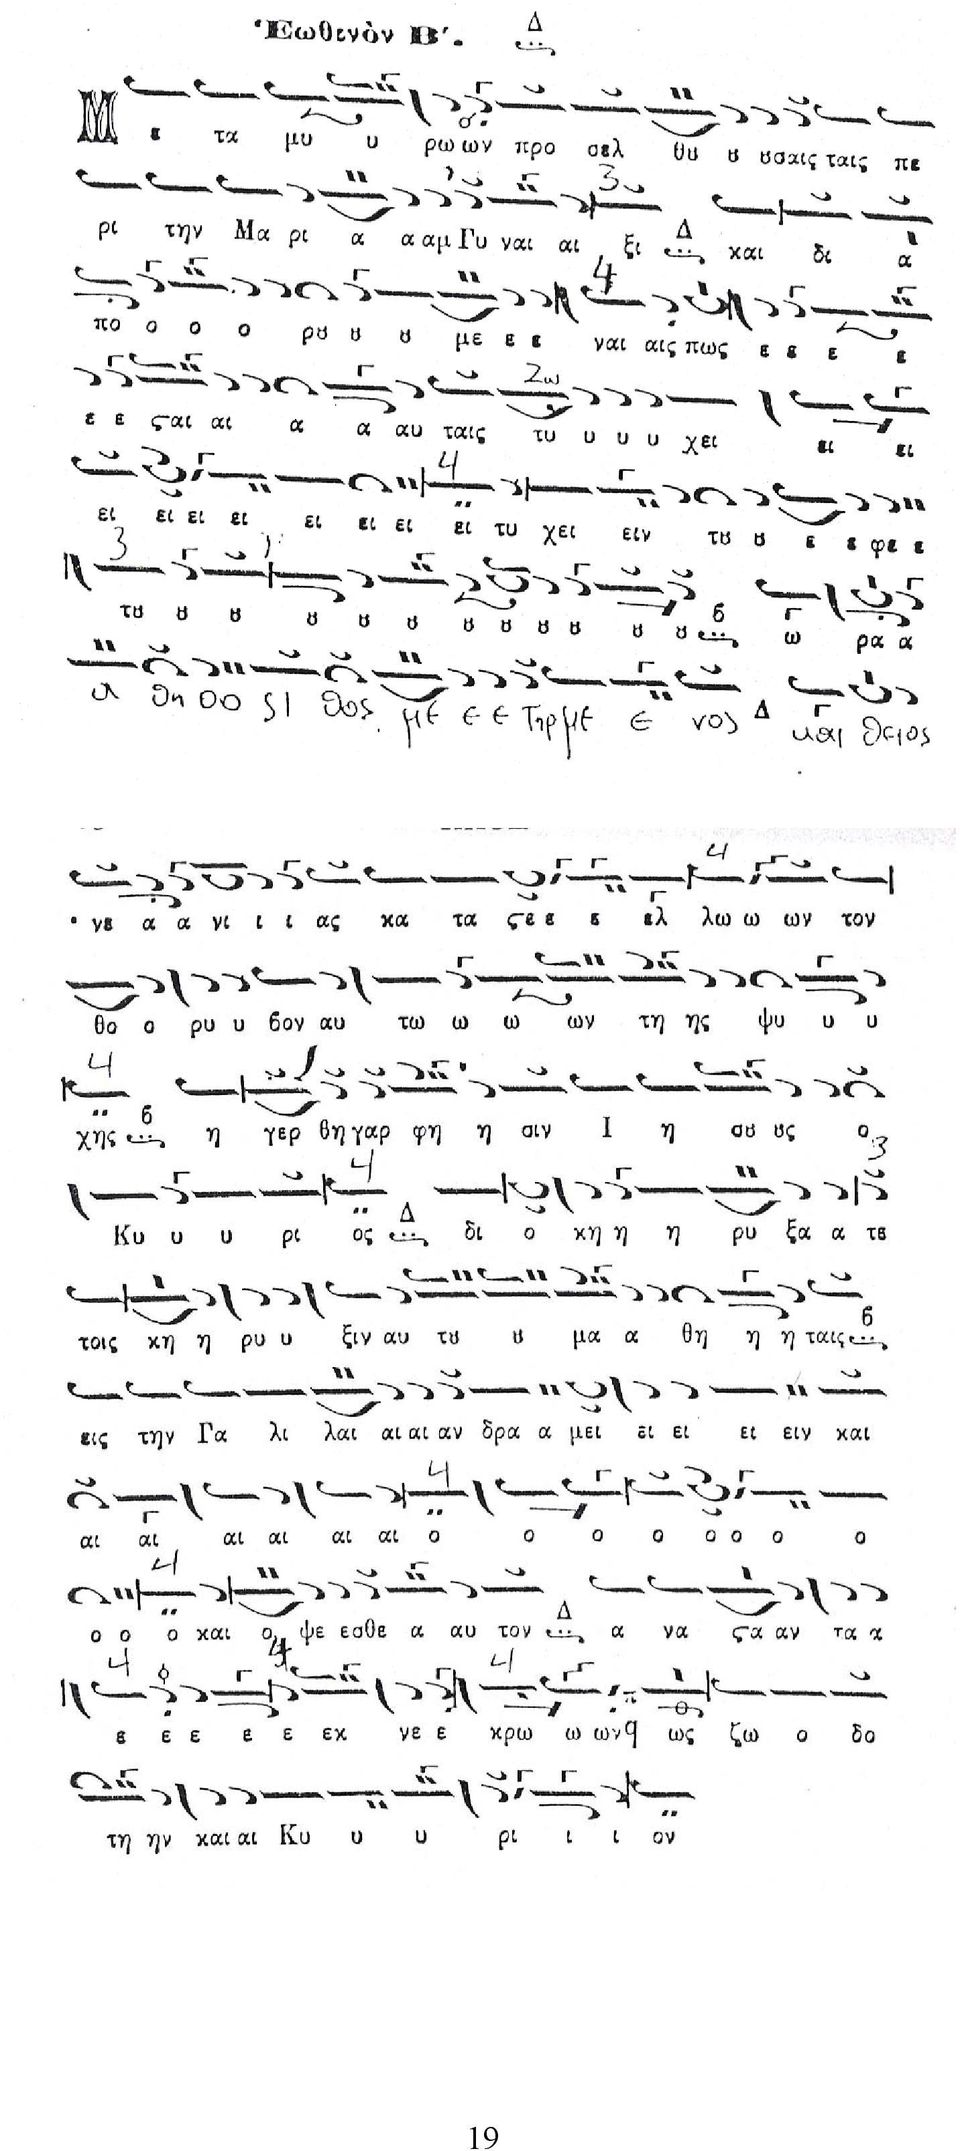 Ἑωθινὸν Β΄. Δ
Μ ε τα μυ υ ρω ων προ σελ θȣ ȣ ȣσαις ταις πε
3
ρι την Μα ρι α α αμ Γυ ναι αι ξι Δ και δι α
4
πο ο ο ο ρȣ ȣ ȣ με ε ε ναι αις πως ε ε ε ε
2ω
ε ε ϛαι αι α α αυ ταις τυ υ υ υ χει ει ει
4
ει ει ει ει ει ει ει ει τυ χει ειν τȣ ȣ ε ε φε ε
3
τȣ ȣ ȣ ȣ ȣ ȣ ȣ ȣ ȣ ȣ ȣ ȣ β ω ρα α
α θη οο ϛι θος με ε ε τηρ με ε νος Δ και θειος
4
νε α α νι ι ι ας κα τα ϛε ε ε ελ λω ω ων τον
θο ο ρυ υ βον αυ τω ω ω ων τη ης ψυ υ υ
4
χης β η γερ θη γαρ φη η σιν Ι η σȣ ȣς ο
4 3
Κυ υ υ ρι ος Δ δι ο κη η η ρυ ξα α τε
τοις κη η ρυ υ ξιν αυ τȣ ȣ μα α θη η η ταις β
εις την Γα λι λαι αι αι αν δρα α μει ει ει ει ειν και
4
αι αι αι αι αι αι ο ο ο ο ο ο ο ο
4
ο ο ο και ο ψε εσθε α αυ τον Δ α να ϛα αν τα α
4 4 4
ε ε ε ε ε εκ νε ε κρω ω ων ως ζω ο δο
τη ην και αι Κυ υ υ ρι ι ι ον
19